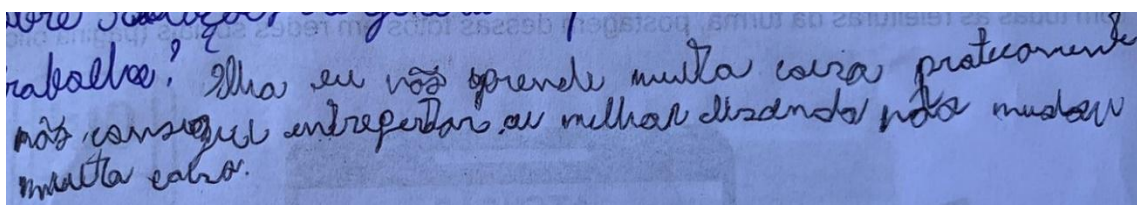 trabalho? Olha eu não aprende muita coisa praticamente
não consegui entrepertar, ou melhor dizendo não mudou
muita coisa.